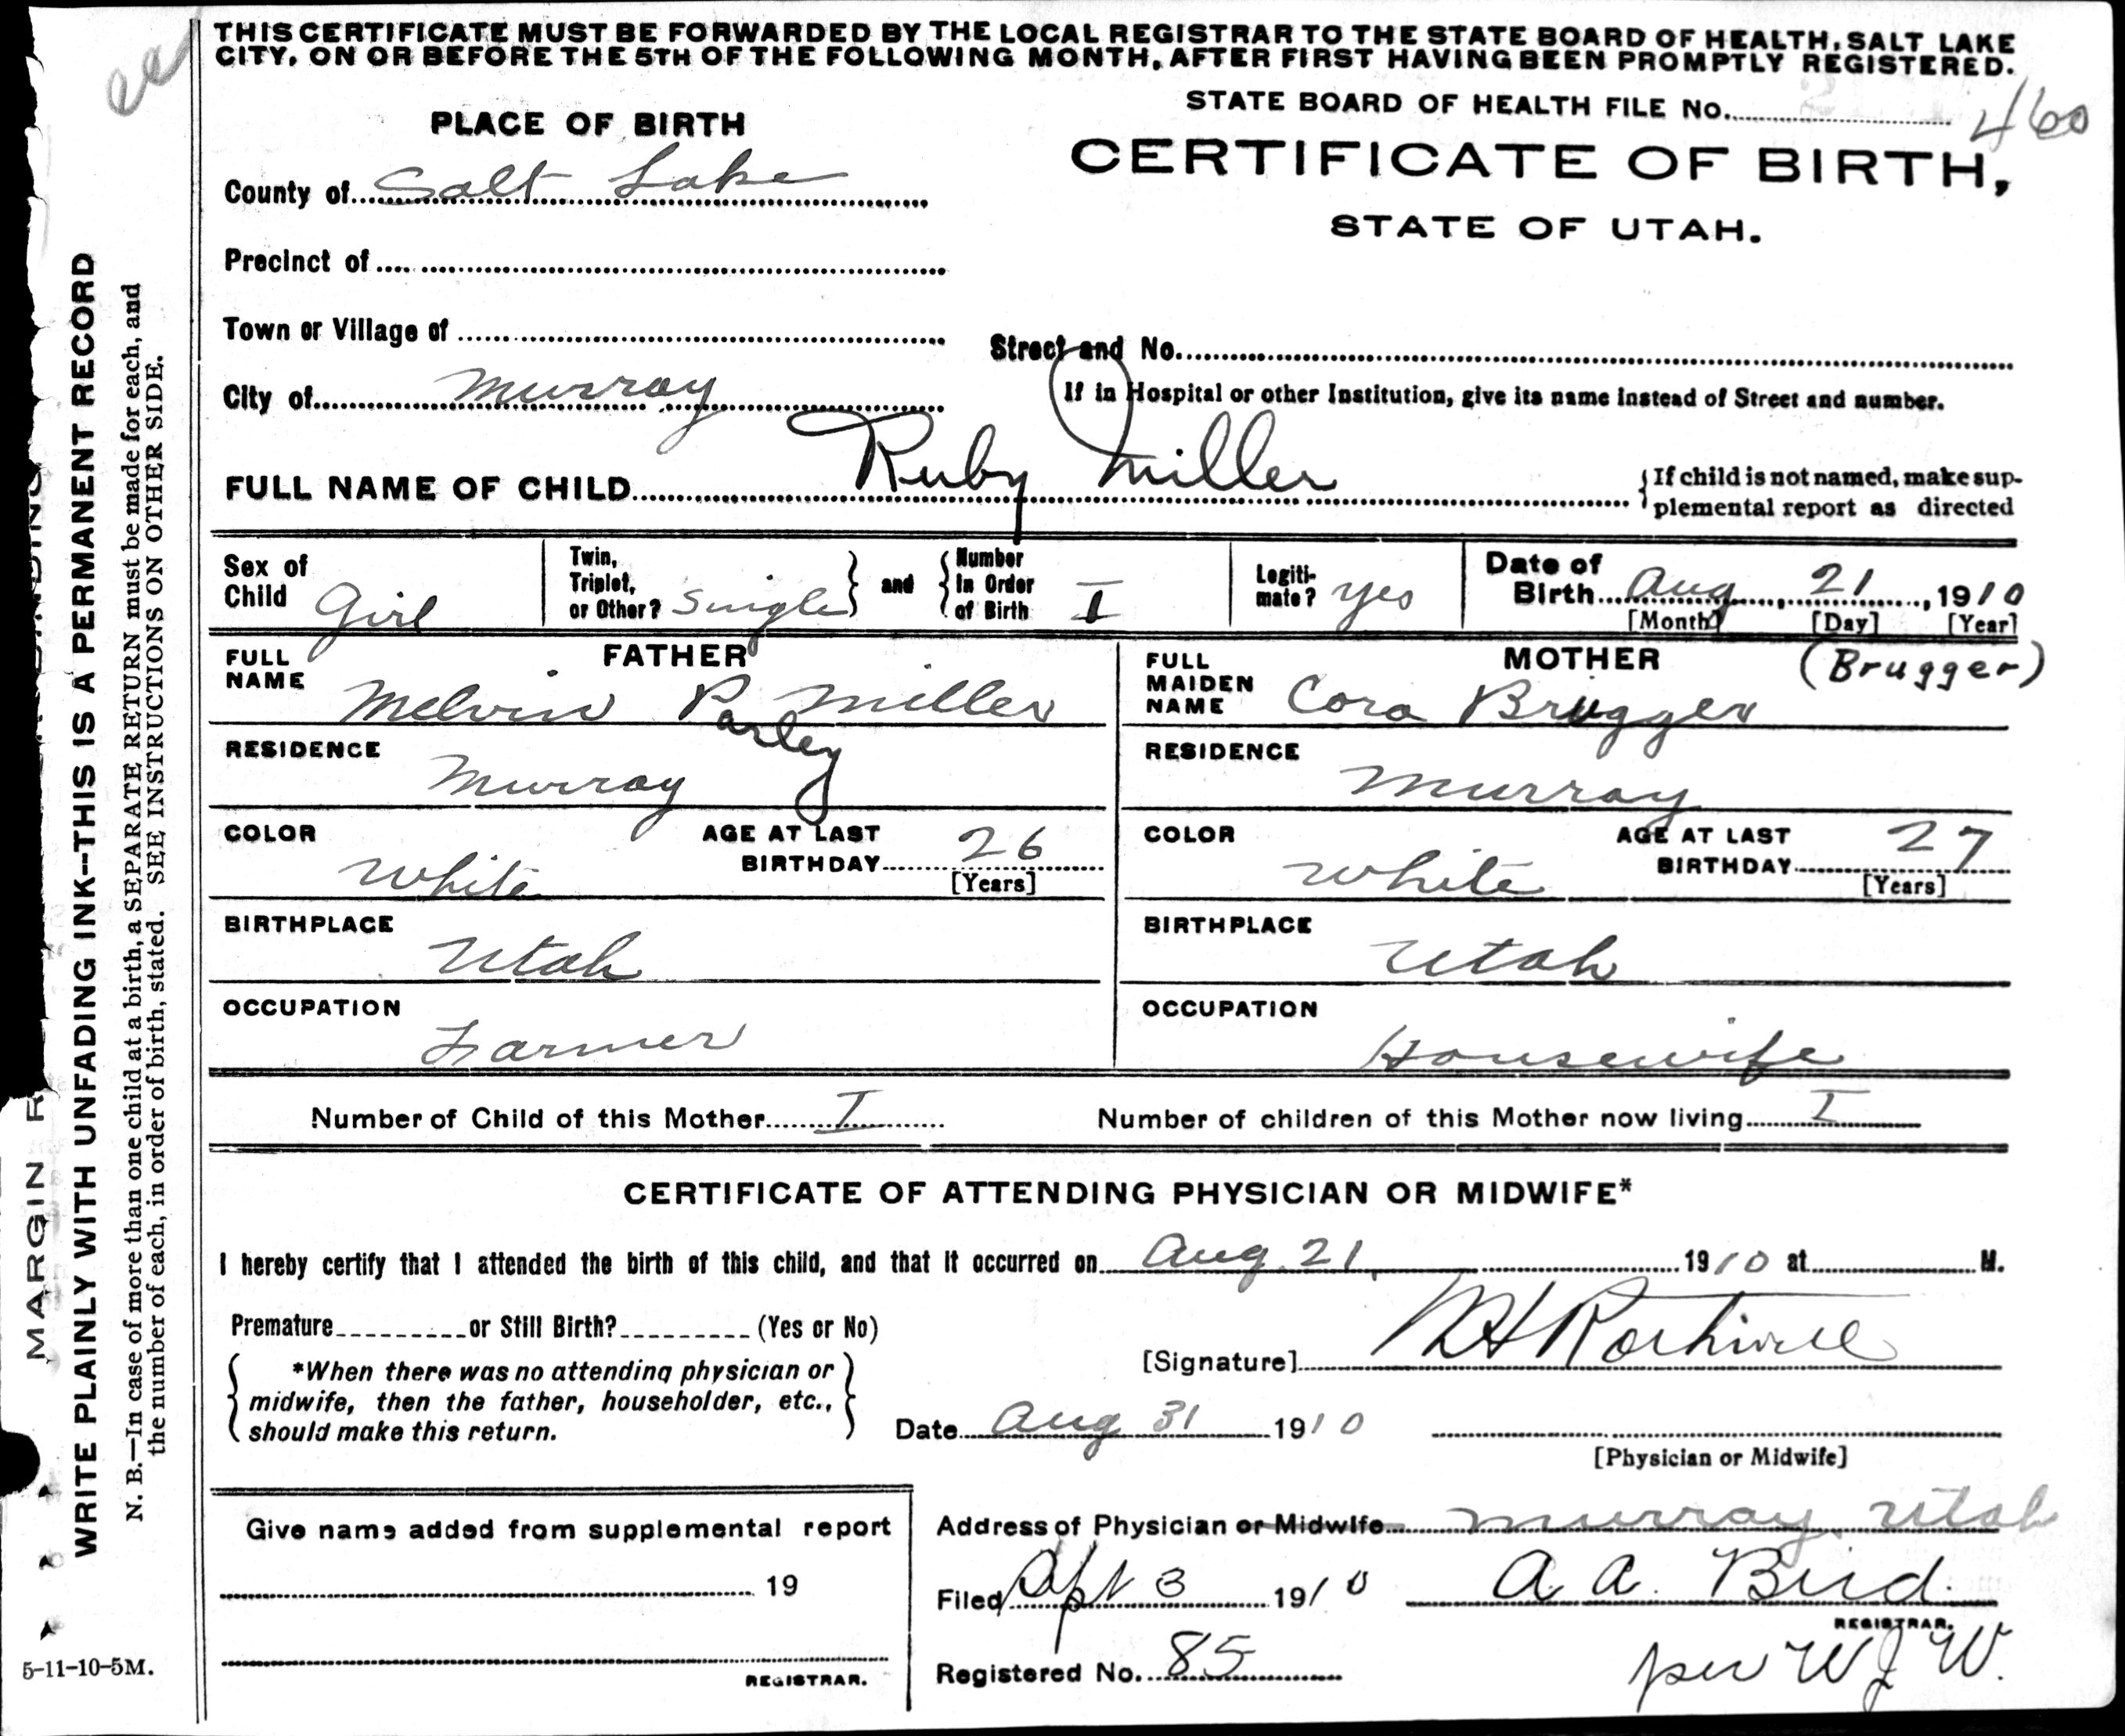 THIS CERTIFICATE MUST BE FORWARDED BY THE LOCAL REGISTRAR TO THE STATE BOARD OF HEALTH, SALT LAKE
CITY, ON OR BEFORE THE 5TH OF THE FOLLOWING MONTH, AFTER FIRST HAVING BEEN PROMPTLY REGISTERED.
STATE BOARD OF HEALTH FILE No. 460
PLACE OF BIRTH
CERTIFICATE OF BIRTH,
STATE OF UTAH.
County of Salt Lake
Precinct of
Town or Village of
Street and No.
City of Murray
If in Hospital or other Institution, give its name instead of Street and number.
FULL NAME OF CHILD Ruby Miller
If child is not named, make sup-
plemental report as directed
Sex of Child Girl
Twin, Triplet, or Other? Single and Number In Order of Birth 1
Legiti-mate? yes
Date of Birth Aug 21, 1910
[Month] [Day] [Year]
FATHER
FULL NAME Melvin P Miller
Parley
RESIDENCE Murray
COLOR White
AGE AT LAST BIRTHDAY 26
[Years]
BIRTHPLACE Utah
OCCUPATION Farmer
MOTHER (Brugger)
FULL MAIDEN NAME Cora Brugger
RESIDENCE Murray
COLOR White
AGE AT LAST BIRTHDAY 27
[Years]
BIRTHPLACE Utah
OCCUPATION Housewife
Number of Child of this Mother I
Number of children of this Mother now living I
CERTIFICATE OF ATTENDING PHYSICIAN OR MIDWIFE*
I hereby certify that I attended the birth of this child, and that it occurred on Aug. 21, 1910 at M.
Premature or Still Birth? (Yes or No)
*When there was no attending physician or
midwife, then the father, householder, etc.,
should make this return.
[Signature] Rothwell
Date Aug 31 1910
[Physician or Midwife]
Give name added from supplemental report
19
REGISTRAR.
Address of Physician or Midwife Murray, Utah
Filed Sept 3 1910 A A. Bird.
REGISTRAR.
Registered No. 85
per W J W.
MARGIN R
WRITE PLAINLY WITH UNFADING INK--THIS IS A PERMANENT RECORD
N. B.—In case of more than one child at a birth, a SEPARATE RETURN must be made for each, and
the number of each, in order of birth, stated. SEE INSTRUCTIONS ON OTHER SIDE.
5-11-10-5M.